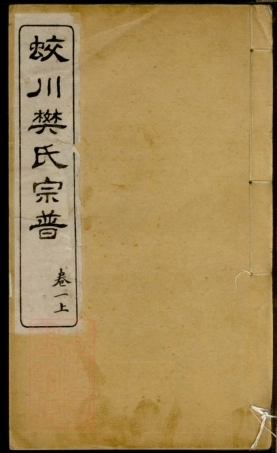 蛟川樊氏宗普
卷一上